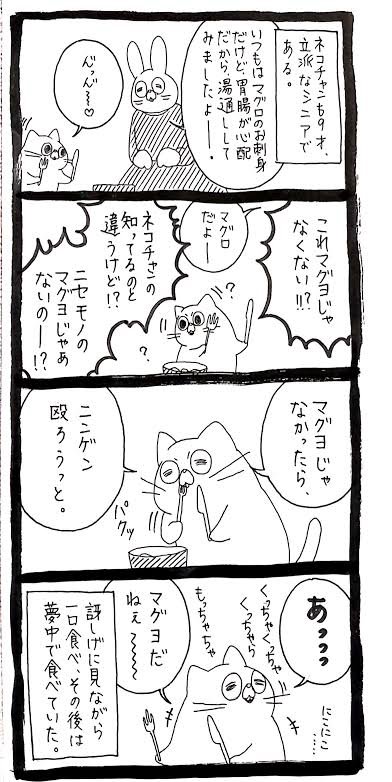 ネコチャンも9才、
立派なシニアで
ある。
いつもはマグロのお刺身
だけど、胃腸が心配
だから、湯通しして
みましたよー。
ん゛っん゛〜♡
これマグヨじゃ
なくない!!?
マグロ
だよー
ネコチャンの
知ってるのと
違うけど!?
ニセモノの
マグヨじゃあ
ないのー!?
?
!?
?
マグヨじゃ
なかったら、
ニンゲン
殴ろうっと。
パクッ
あっっっ
くっちゃくっちゃ
くっちゃら
もっちゃちゃ
マグヨだ
ねぇ〜〜〜
にこにこ……
訝しげに見ながら
一口食べ、その後は
夢中で食べていた。